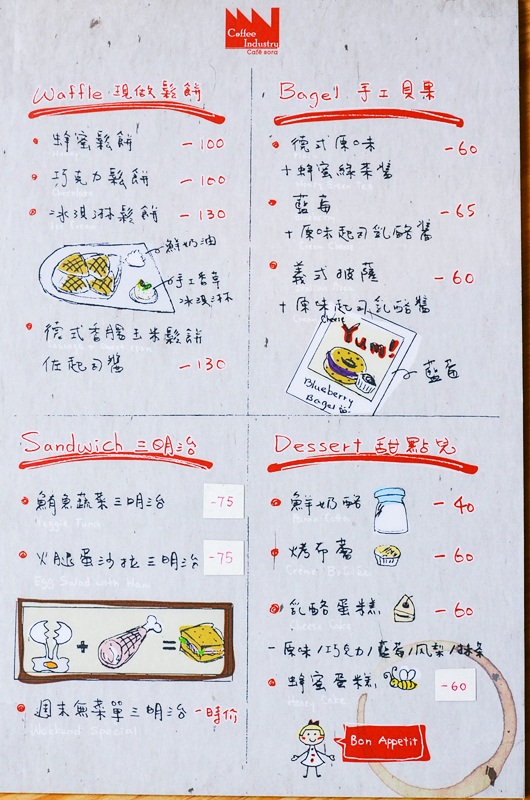 Coffee
Industry
Café sora
Waffle 現做鬆餅
蜂蜜鬆餅 -100
巧克力鬆餅 -100
冰淇淋鬆餅 -130
鮮奶油
手工香草
冰淇淋
德式香腸玉米鬆餅
佐起司醬 -130
Bagel 手工貝果
德式原味 -60
+蜂蜜綠茶醬
藍莓 -65
+原味起司乳酪醬
義式披薩 -60
+原味起司乳酪醬
Yum!
Blueberry
Bagel
藍莓
Sandwich 三明治
鮪魚蔬菜三明治 -75
Veggie Tuna
火腿蛋沙拉三明治 -75
Egg Salad with Ham
+ =
週末無菜單三明治 -時價
Weekend Special
Dessert 甜點兒
鮮奶酪 -40
Panna Cotta
烤布蕾 -60
Crème Brûlée
乳酪蛋糕 -60
Cheese Cake
-原味/巧克力/藍莓/鳳梨/抹茶
蜂蜜蛋糕 -60
Honey Cake
Bon Appetit